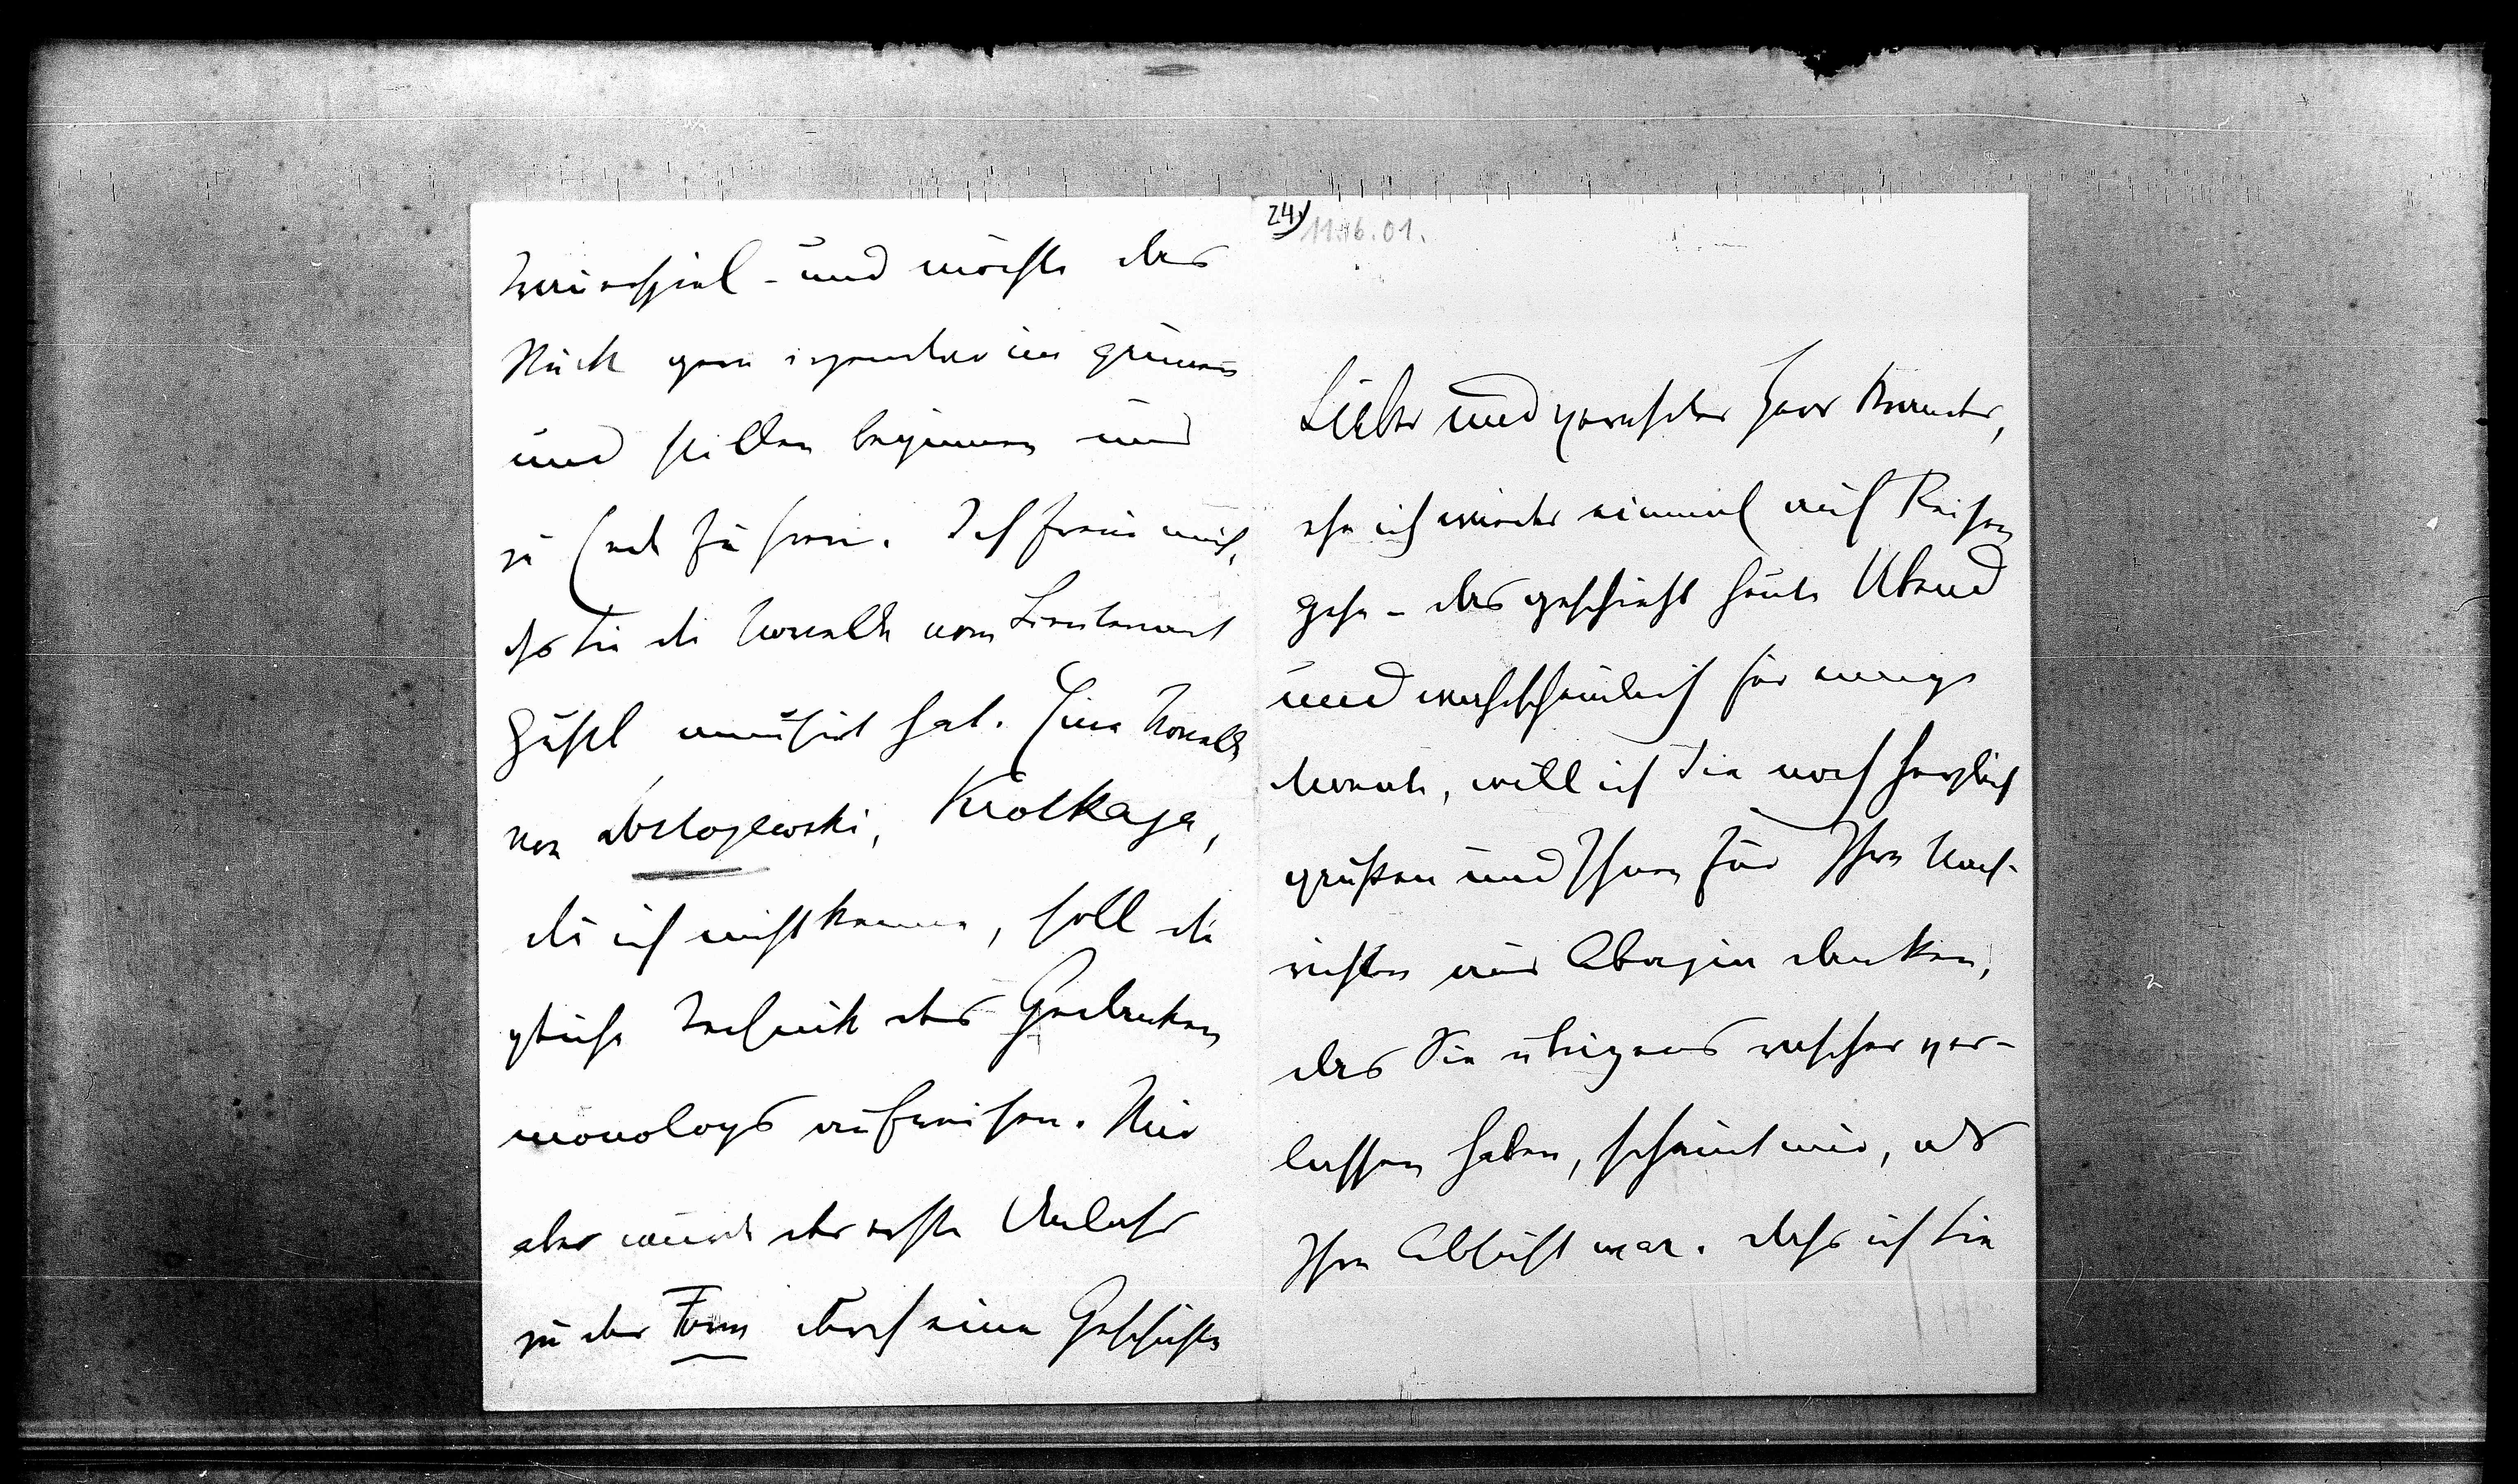 Trauerspiel – und möchte das
Stück gern irgendwo im grünen
und stillen beginnen und
zu Ende führen. Ich freue mich,
dſs Sie die Novelle vom Lieutenant
Gustl amüsirt hat. Eine Novelle
von Dostojewski, Krotkaja,
die ich nicht kenne, soll die
gleiche Technik des Gedanken
monologs aufweisen. Mir
aber wurde der erste Anlaß
zu der Form durch eine Geschichte
24)
11.6.01.
Lieber und verehrter Herr Brandes,
ehe ich wieder einmal auf Reisen
gehe – das geschieht heute Abend
und wahrscheinlich für einige
Monate, will ich Sie noch herzlich
grüßen und Ihnen für Ihre Nach-
richten aus Abazia danken,
das Sie übrigens rascher ver-
lassen haben, scheint mir, als
Ihre Absicht war. Dass ich Sie